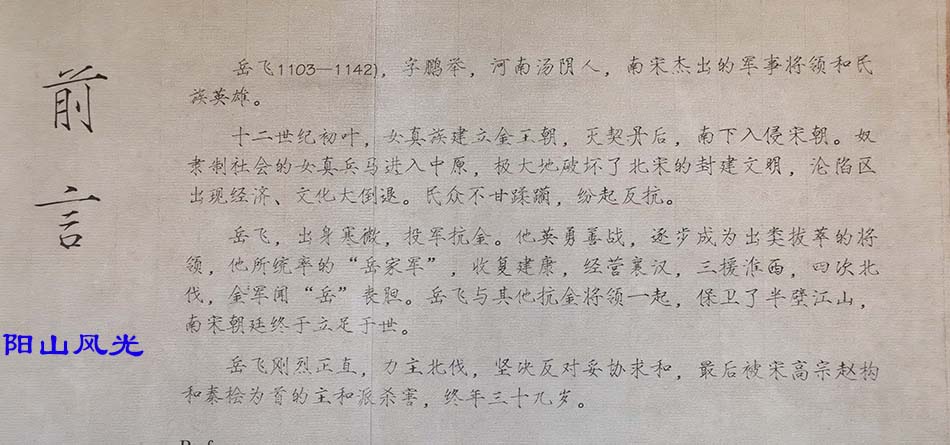 前言
岳飞1103—1142),字鹏举,河南汤阴人,南宋杰出的军事将领和民
族英雄。
十二世纪初叶,女真族建立金王朝,灭契丹后,南下入侵宋朝。奴
隶制社会的女真兵马进入中原,极大地破坏了北宋的封建文明,沦陷区
出现经济、文化大倒退。民众不甘蹂躏,纷起反抗。
岳飞,出身寒微,投军抗金。他英勇善战,逐步成为出类拔萃的将
领,他所统率的“岳家军”,收复建康,经营襄汉,三援淮西,四次北
伐,金军闻“岳”丧胆。岳飞与其他抗金将领一起,保卫了半壁江山,
南宋朝廷终于立足于世。
岳飞刚烈正直,力主北伐,坚决反对妥协求和,最后被宋高宗赵构
和秦桧为首的主和派杀害,终年三十九岁。
阳山风光